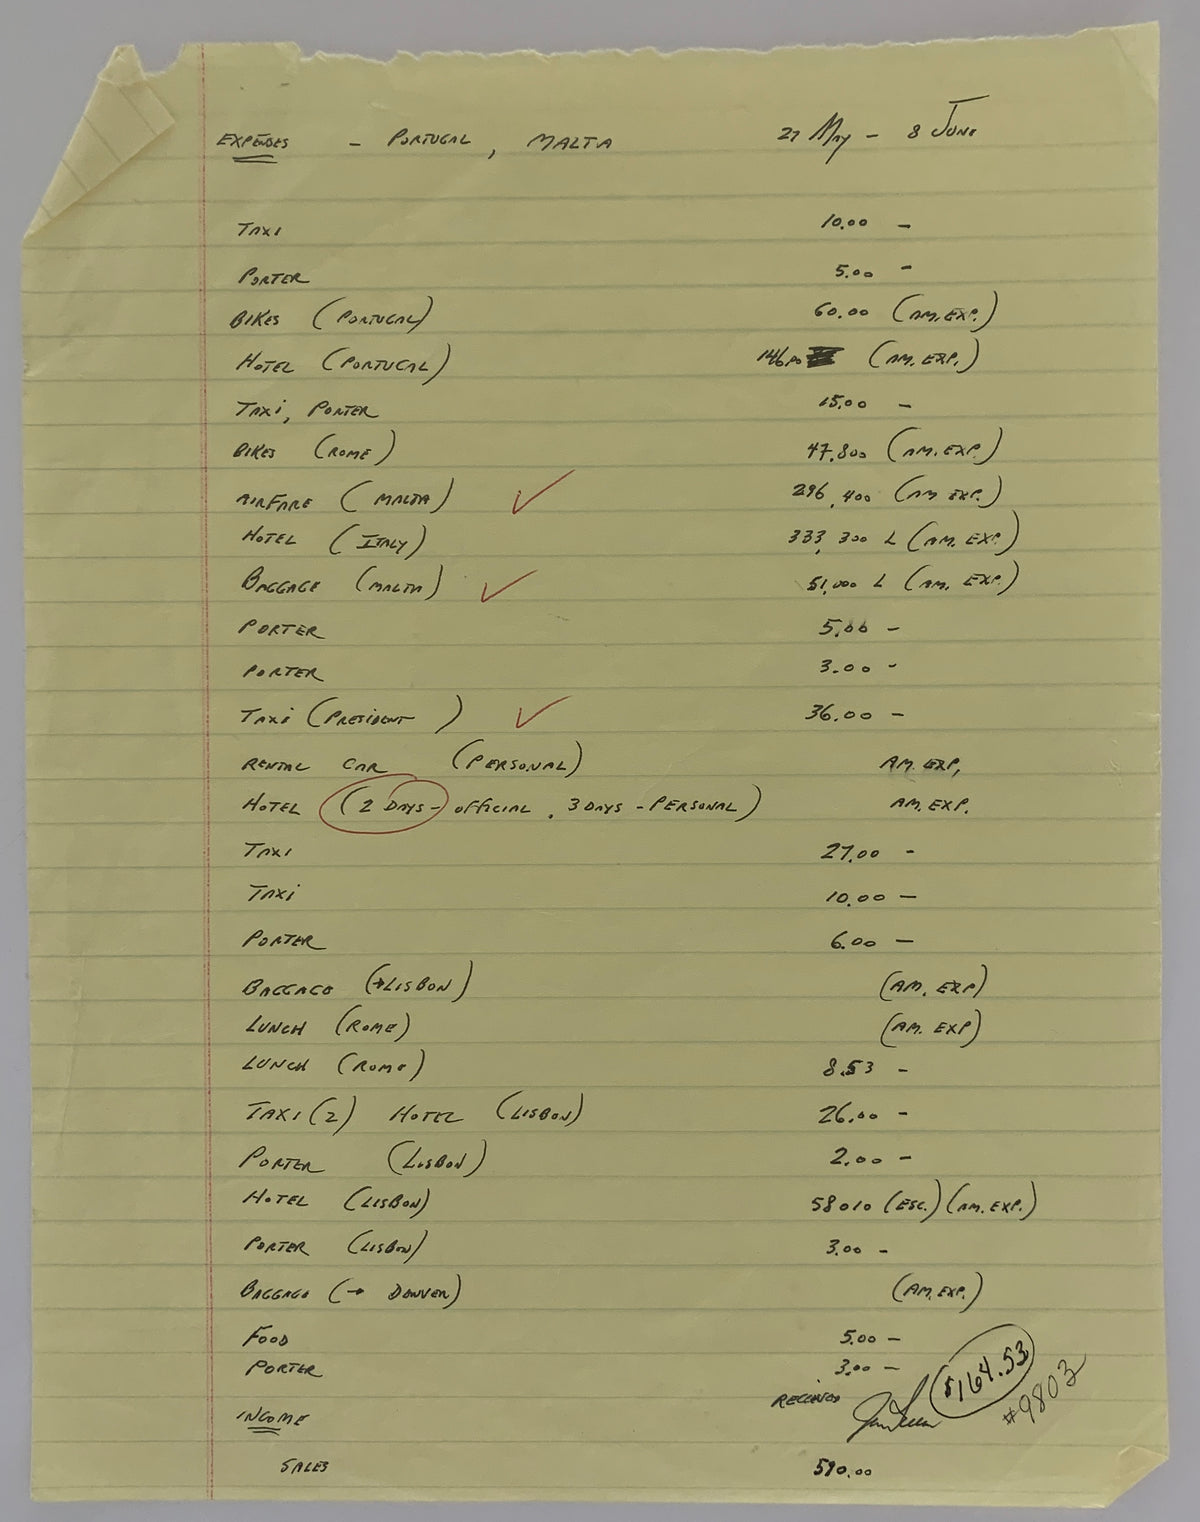 EXPENSES - PORTUGAL, MALTA 27 MAY - 8 JUNE
TAXI 10.00 -
PORTER 5.00 -
BIKES (PORTUGAL) 60.00 (AM. EXP.)
HOTEL (PORTUGAL) 146.00 (AM. EXP.)
TAXI, PORTER 15.00 -
BIKES (ROME) 47.800 (AM. EXP.)
AIRFARE (MALTA) ✓ 296,400 (AM EXP.)
HOTEL (ITALY) 333,300 L (AM. EXP.)
BAGGAGE (MALTA) ✓ 51,000 L (AM. EXP.)
PORTER 5.00 -
PORTER 3.00 -
TAXI (PRESIDENT) ✓ 36.00 -
RENTAL CAR (PERSONAL) AM. EXP.
HOTEL (2 DAYS - OFFICIAL, 3 DAYS - PERSONAL) AM. EXP.
TAXI 27.00 -
TAXI 10.00 -
PORTER 6.00 -
BAGGAGE (→LISBON) (AM. EXP)
LUNCH (ROME) (AM. EXP)
LUNCH (ROME) 8.53 -
TAXI (2) HOTEL (LISBON) 26.00 -
PORTER (LISBON) 2.00 -
HOTEL (LISBON) 58010 (ESC.) (AM. EXP.)
PORTER (LISBON) 3.00 -
BAGGAGE (→ DENVER) (AM. EXP.)
FOOD 5.00 -
PORTER 3.00 -
RECEIVED $164.53
#9803
INCOME
SALES 590.00